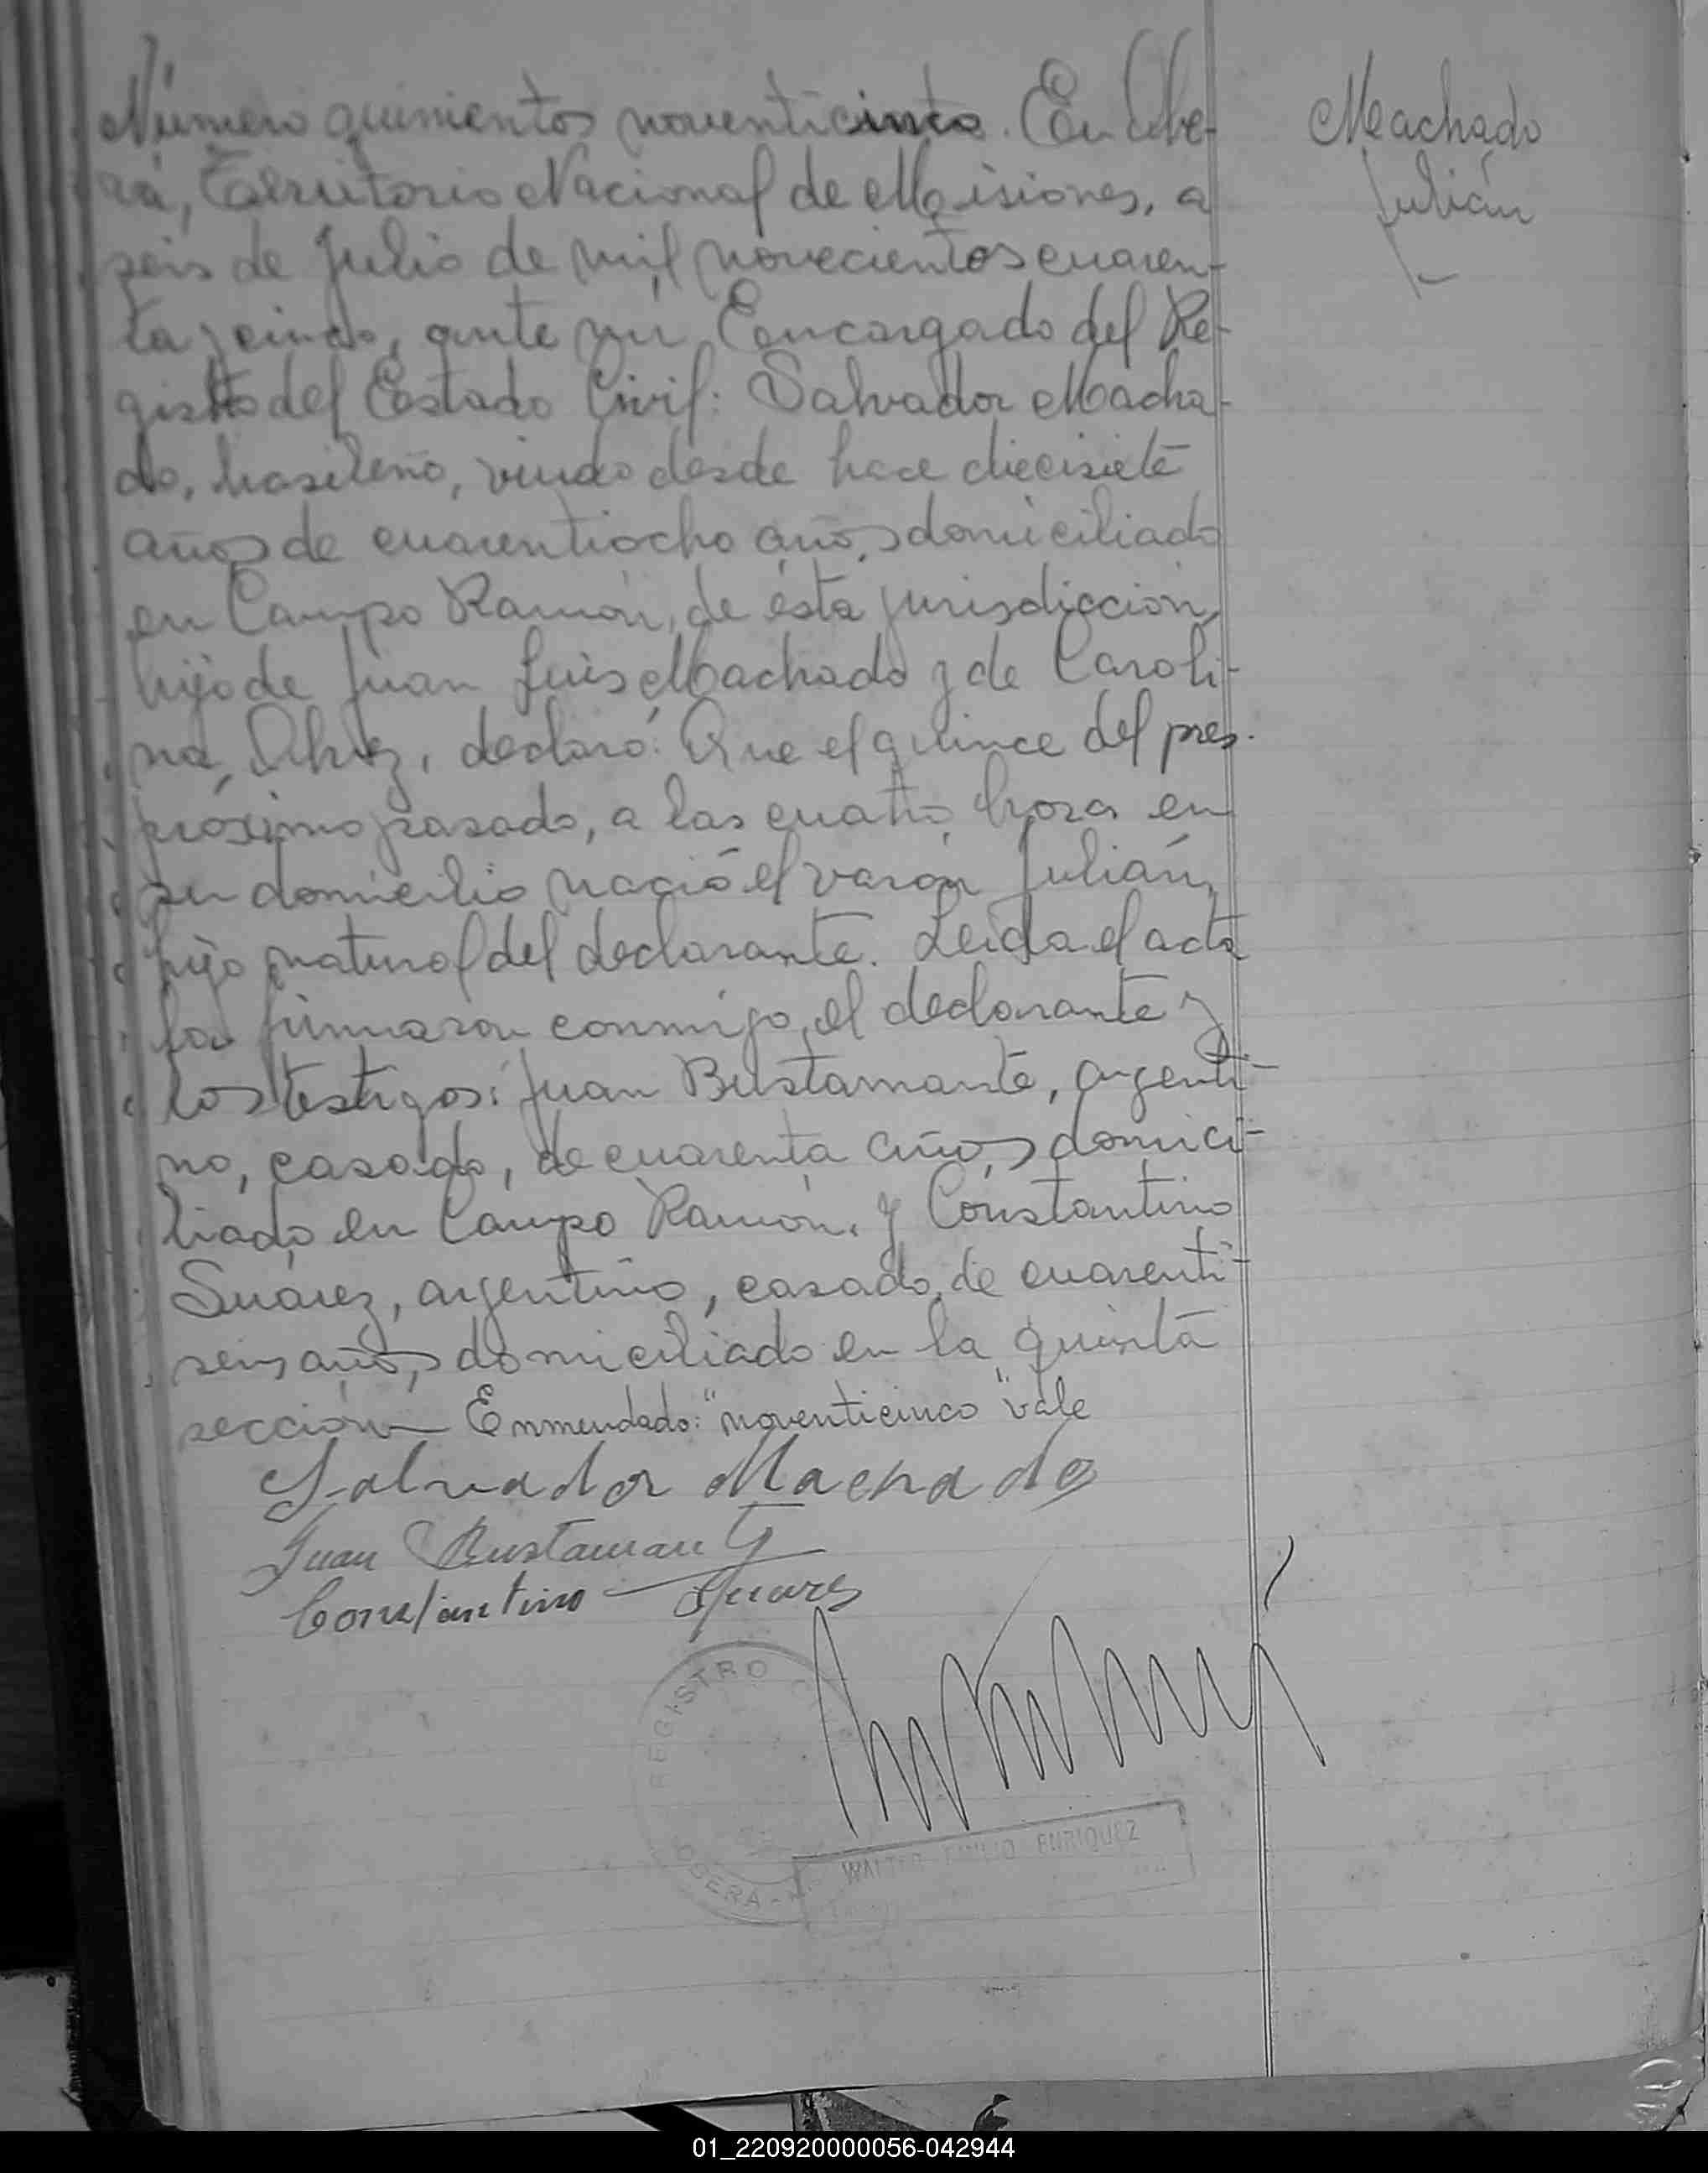 Número quinientos noventicinco. En Obe-
rá, Territorio Nacional de Misiones, a
seis de Julio de mil novecientos cuaren-
ta y cinco, ante mí, Encargado del Re-
gistro del Estado Civil: Salvador Macha-
do, brasileño, viudo desde hace diecisiete
años de cuarentiocho años, domiciliado
en Campo Ramón, de ésta jurisdicción,
hijo de Juan Luis Machado y de Caroli-
na, declaró: Que el quince del pres.
próximo pasado, a las cuatro hora en
su domicilio nació el varón Julián,
hijo natural del declarante. Leida el acta
la firmaron conmigo, el declarante y
los testigos: Juan Bustamante, argenti-
no, casado, de cuarenta años, domici-
liado en Campo Ramón. y Constantino
Suárez, argentino, casado, de cuarenti-
seis años, domiciliado en la quinta
sección Enmendado: "noventicinco" vale
Salvador Machado
Juan Bustamante
Constantino Suares
Machado
Julián
REGISTRO
OBERA -
WALTER EMILIO ENRIQUEZ
01_220920000056-042944